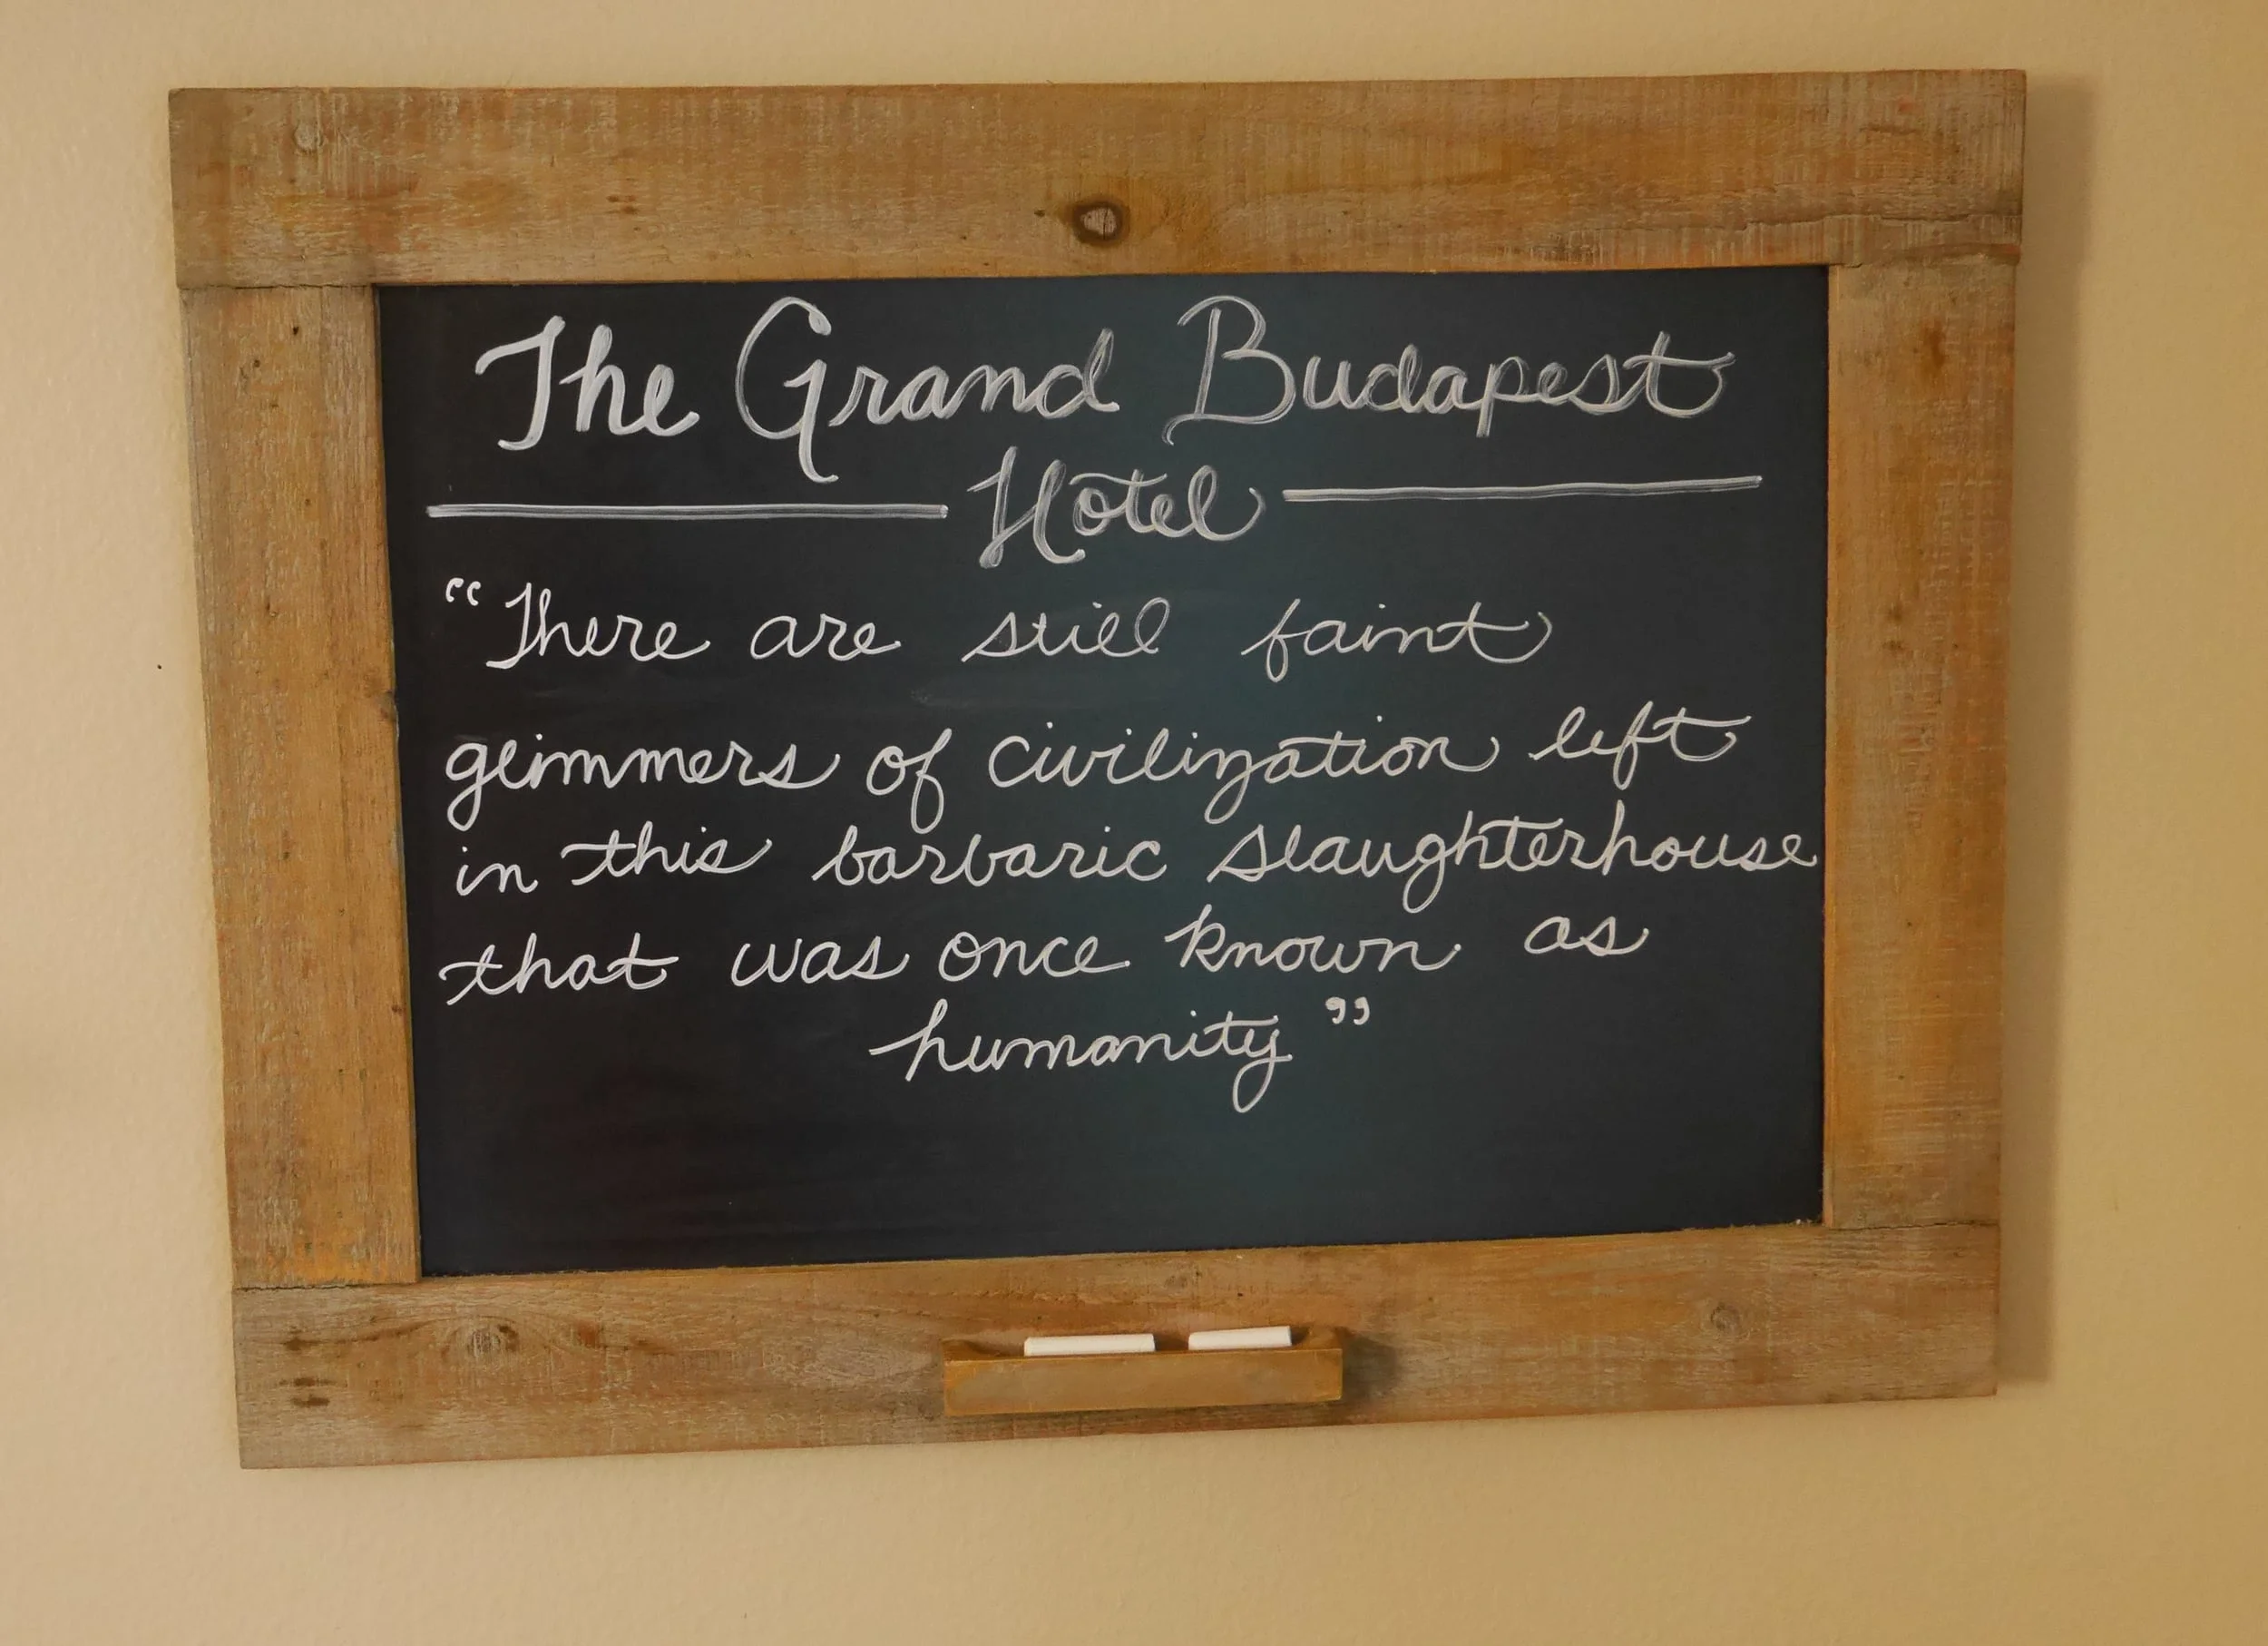 The Grand Budapest
Hotel
“There are still faint
glimmers of civilization left
in this barbaric slaughterhouse
that was once known as
humanity”